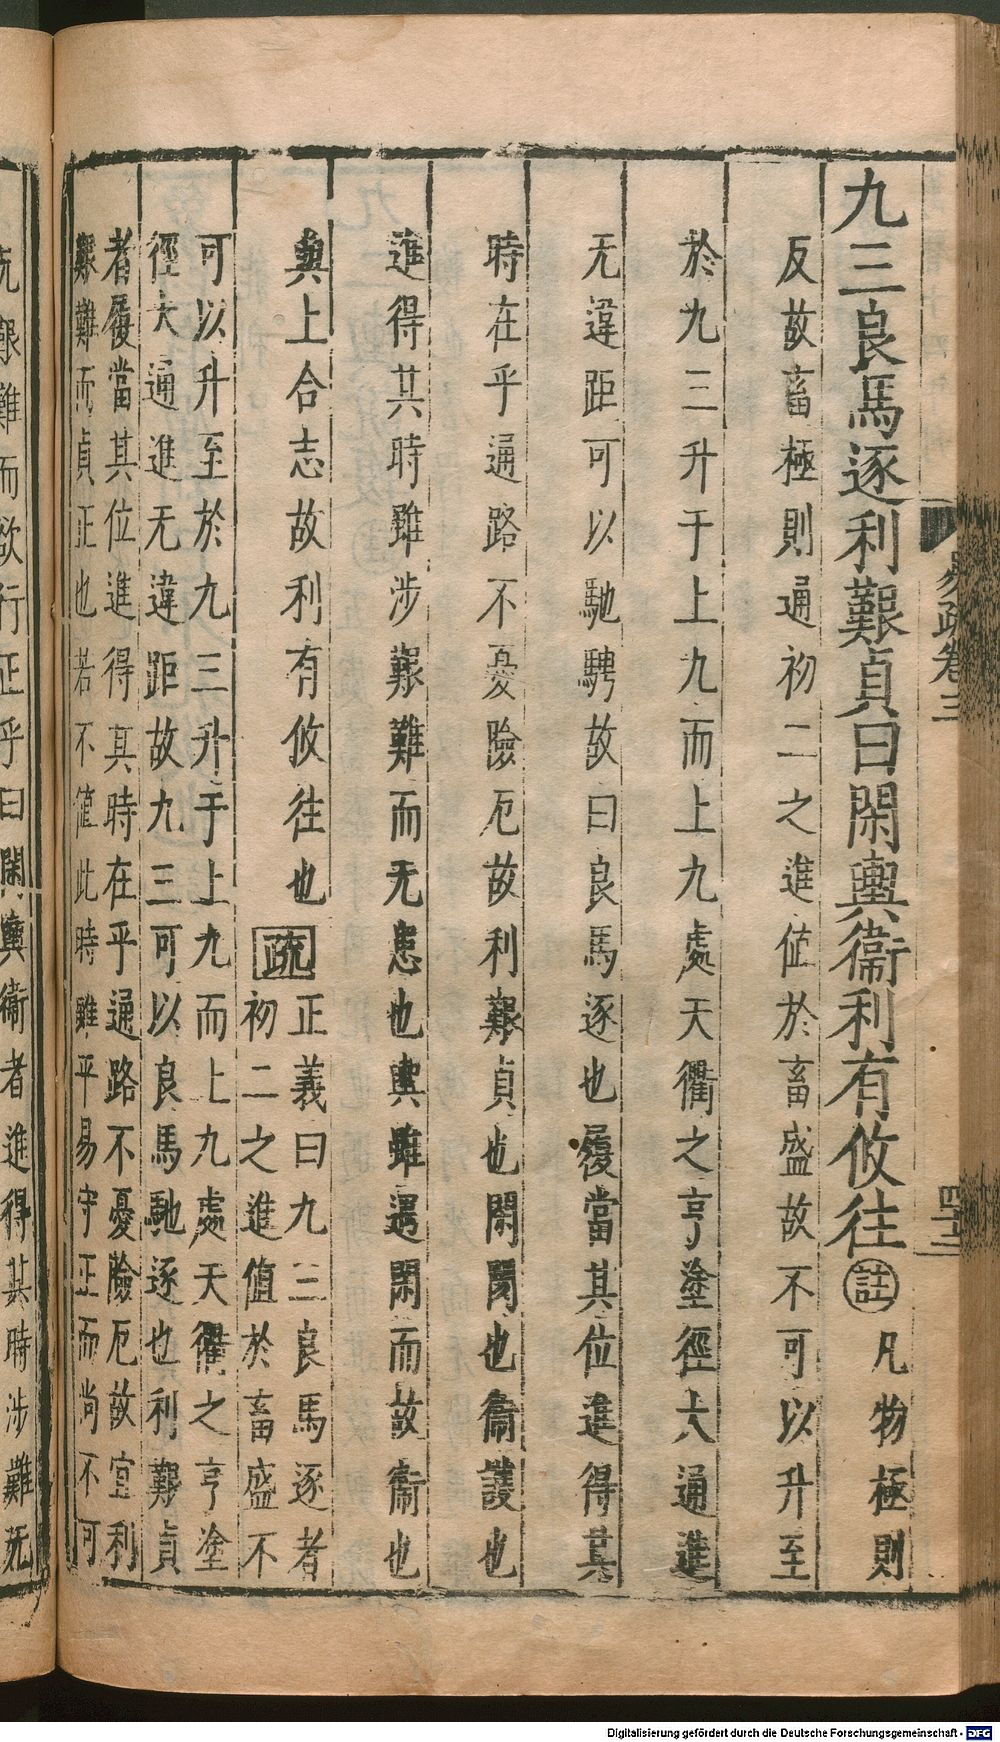 九三良馬逐利艱貞曰閑輿衛利有攸往註凡物極則
反故畜極則通初二之進值於畜盛故不可以升至
於九三升于上九而上九處天衢之亨塗徑大通進
无違距可以馳騁故曰良馬逐也履當其位進得其
時在乎通路不憂險厄故利艱貞也閑閡也衛護也
進得其時雖涉艱難而无患也輿雖遇閑而故衛也
與上合志故利有攸往也疏正義曰九三良馬逐者
初二之進值於畜盛不
可以升至於九三升于上九而上九處天衢之亨塗
徑大通進无違距故九三可以良馬馳逐也利艱貞
者履當其位進得其時在乎通路不憂險厄故宜利
艱難而貞正也若不值此時雖平易守正而尚不可
況艱難而欲行正乎曰閑輿衛者進得其時涉難无
易疏卷三
Digitalisierung gefördert durch die Deutsche Forschungsgemeinschaft - DFG